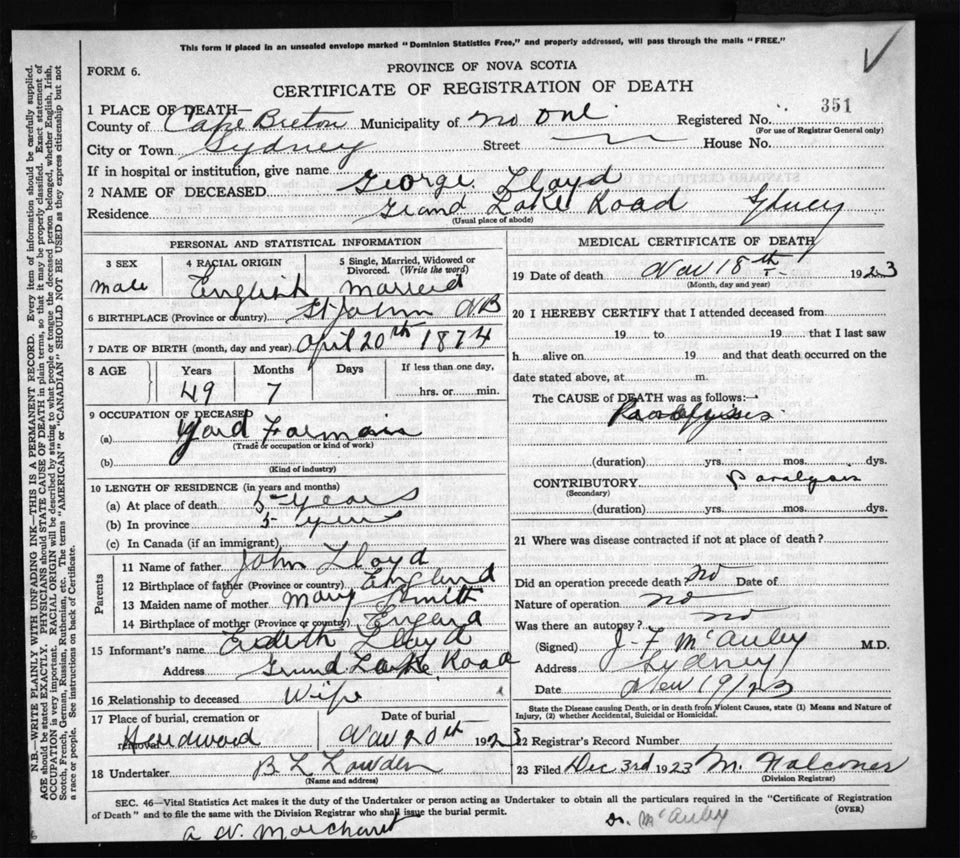 This form if placed in an unsealed envelope marked "Dominion Statistics Free," and properly addressed, will pass through the mails "FREE."
FORM 6.
PROVINCE OF NOVA SCOTIA
CERTIFICATE OF REGISTRATION OF DEATH
351
1 PLACE OF DEATH—
County of Cape Breton Municipality of No One Registered No.
(For use of Registrar General only)
City or Town Sydney Street House No.
If in hospital or institution, give name
2 NAME OF DECEASED George Lloyd
Residence Grand Lake Road Sydney
(Usual place of abode)
PERSONAL AND STATISTICAL INFORMATION
3 SEX 4 RACIAL ORIGIN 5 Single, Married, Widowed or Divorced. (Write the word)
Male English Married
6 BIRTHPLACE (Province or country) St John NB
7 DATE OF BIRTH (month, day and year) April 20th 1874
8 AGE Years Months Days If less than one day,
49 7 hrs. or min.
9 OCCUPATION OF DECEASED
(a) Yard Formain
(Trade or occupation or kind of work)
(b)
(Kind of industry)
10 LENGTH OF RESIDENCE (in years and months)
(a) At place of death 5 years
(b) In province 5 years
(c) In Canada (if an immigrant)
Parents
11 Name of father John Lloyd
12 Birthplace of father (Province or country) England
13 Maiden name of mother Mary Smith
14 Birthplace of mother (Province or country) England
15 Informant's name Eedith Lloyd
Address Grand Lake Road
16 Relationship to deceased Wife
17 Place of burial, cremation or removal Date of burial
Hardwood Nov 20th 1923
18 Undertaker B L Lowden
(Name and address)
MEDICAL CERTIFICATE OF DEATH
19 Date of death Nov 18th 1923
(Month, day and year)
20 I HEREBY CERTIFY that I attended deceased from
19 to 19 that I last saw
h alive on 19 and that death occurred on the
date stated above, at m.
The CAUSE of DEATH was as follows:—
(duration) yrs. mos. dys.
CONTRIBUTORY Paralysis
(Secondary)
(duration) yrs. mos. dys.
21 Where was disease contracted if not at place of death?
Did an operation precede death no Date of
Nature of operation no
Was there an autopsy? no
(Signed) J. F. McAuley M.D.
Address Sydney
Date Nov 19/23
State the Disease causing Death, or in death from Violent Causes, state (1) Means and Nature of Injury, (2) whether Accidental, Suicidal or Homicidal.
22 Registrar's Record Number
23 Filed Dec 3rd 1923 M. Falconer
(Division Registrar)
SEC. 46—Vital Statistics Act makes it the duty of the Undertaker or person acting as Undertaker to obtain all the particulars required in the "Certificate of Registration
of Death" and to file the same with the Division Registrar who shall issue the burial permit.
(OVER)
A W. Marchant
Dr. McAuley
N.B.—WRITE PLAINLY WITH UNFADING INK—THIS IS A PERMANENT RECORD. Every item of information should be carefully supplied.
AGE should be stated EXACTLY. PHYSICIANS should STATE CAUSE OF DEATH in plain terms, so that it may be properly classified. Exact statement of
OCCUPATION is very important. RACIAL ORIGIN will be described by stating to what people or tongue the deceased person belonged, whether English, Irish,
Scotch, French, German, Russian, Ruthenian, etc. The terms "AMERICAN" or "CANADIAN" SHOULD NOT BE USED as they express citizenship but not
a race or people. See instructions on back of Certificate.